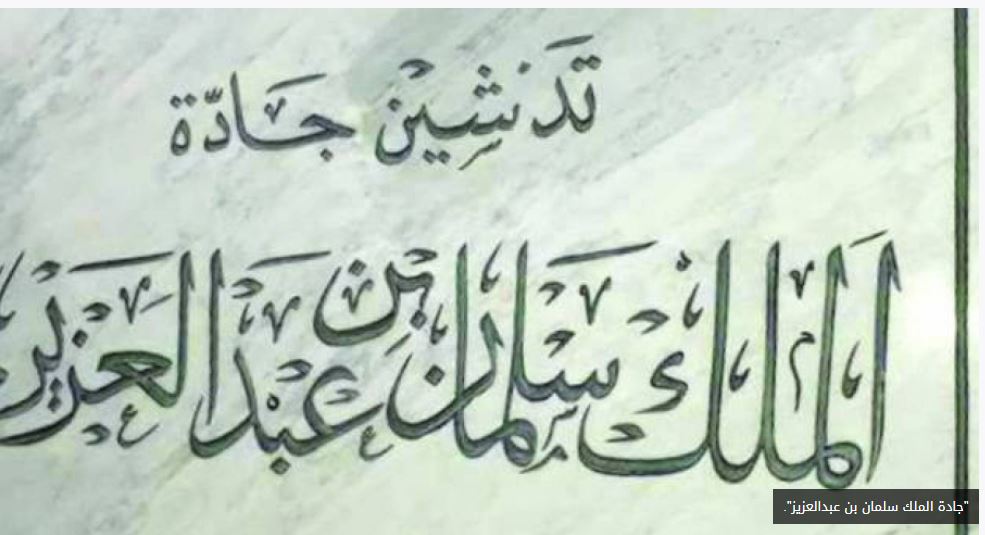 تدشين جادّة
الملك سلمان بن عبدالعزيز
"جادة الملك سلمان بن عبدالعزيز".